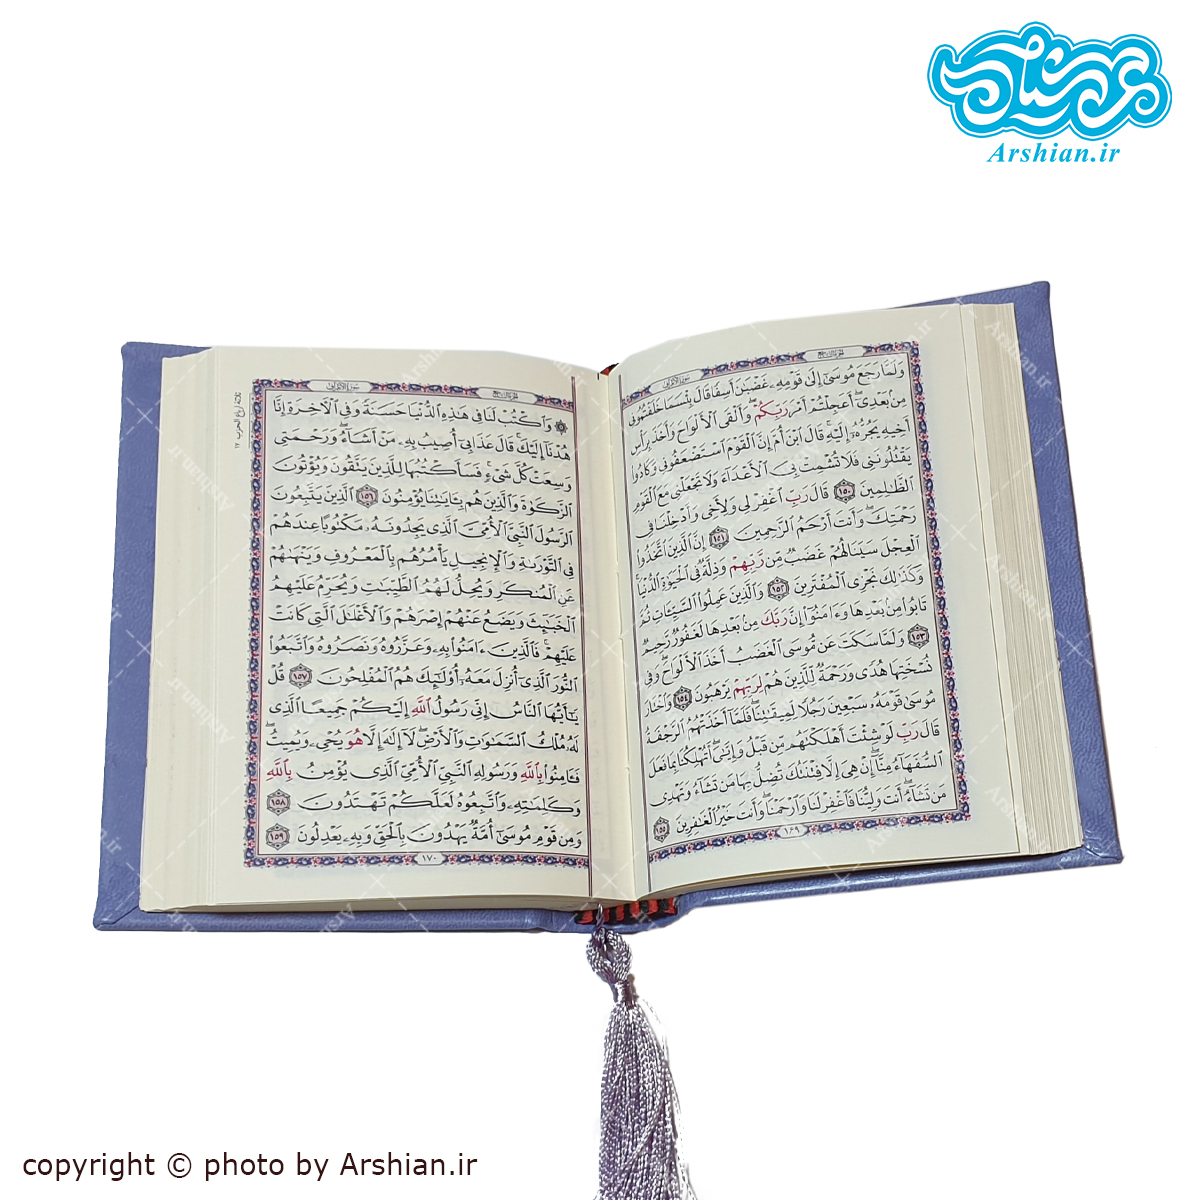 عرشیان
Arshian.ir
سورة الأعراف
الجزء التاسع
وَلَمَّا رَجَعَ مُوسَىٰٓ إِلَىٰ قَوْمِهِۦ غَضْبَٰنَ أَسِفًا قَالَ بِئْسَمَا خَلَفْتُمُونِى
مِنۢ بَعْدِىٓ أَعَجِلْتُمْ أَمْرَ رَبِّكُمْ وَأَلْقَى ٱلْأَلْوَاحَ وَأَخَذَ بِرَأْسِ
أَخِيهِ يَجُرُّهُۥٓ إِلَيْهِ قَالَ ٱبْنَ أُمَّ إِنَّ ٱلْقَوْمَ ٱسْتَضْعَفُونِى وَكَادُوا۟
يَقْتُلُونَنِى فَلَا تُشْمِتْ بِىَ ٱلْأَعْدَآءَ وَلَا تَجْعَلْنِى مَعَ ٱلْقَوْمِ
ٱلظَّٰلِمِينَ ١٥٠ قَالَ رَبِّ ٱغْفِرْ لِى وَلِأَخِى وَأَدْخِلْنَا فِى
رَحْمَتِكَ وَأَنتَ أَرْحَمُ ٱلرَّٰحِمِينَ ١٥١ إِنَّ ٱلَّذِينَ ٱتَّخَذُوا۟
ٱلْعِجْلَ سَيَنَالُهُمْ غَضَبٌ مِّن رَّبِّهِمْ وَذِلَّةٌ فِى ٱلْحَيَوٰةِ ٱلدُّنْيَا
وَكَذَٰلِكَ نَجْزِى ٱلْمُفْتَرِينَ ١٥٢ وَٱلَّذِينَ عَمِلُوا۟ ٱلسَّيِّـَٔاتِ ثُمَّ
تَابُوا۟ مِنۢ بَعْدِهَا وَءَامَنُوٓا۟ إِنَّ رَبَّكَ مِنۢ بَعْدِهَا لَغَفُورٌ رَّحِيمٌ
١٥٣ وَلَمَّا سَكَتَ عَن مُّوسَى ٱلْغَضَبُ أَخَذَ ٱلْأَلْوَاحَ وَفِى
نُسْخَتِهَا هُدًى وَرَحْمَةٌ لِّلَّذِينَ هُمْ لِرَبِّهِمْ يَرْهَبُونَ ١٥٤ وَٱخْتَارَ
مُوسَىٰ قَوْمَهُۥ سَبْعِينَ رَجُلًا لِّمِيقَٰتِنَا فَلَمَّآ أَخَذَتْهُمُ ٱلرَّجْفَةُ
قَالَ رَبِّ لَوْ شِئْتَ أَهْلَكْتَهُم مِّن قَبْلُ وَإِيَّٰىَ أَتُهْلِكُنَا بِمَا فَعَلَ
ٱلسُّفَهَآءُ مِنَّآ إِنْ هِىَ إِلَّا فِتْنَتُكَ تُضِلُّ بِهَا مَن تَشَآءُ وَتَهْدِى
مَن تَشَآءُ أَنتَ وَلِيُّنَا فَٱغْفِرْ لَنَا وَٱرْحَمْنَا وَأَنتَ خَيْرُ ٱلْغَٰفِرِينَ ١٥٥
١٦٩
سورة الأعراف
الجزء التاسع
وَٱكْتُبْ لَنَا فِى هَٰذِهِ ٱلدُّنْيَا حَسَنَةً وَفِى ٱلْءَاخِرَةِ إِنَّا
هُدْنَآ إِلَيْكَ قَالَ عَذَابِىٓ أُصِيبُ بِهِۦ مَنْ أَشَآءُ وَرَحْمَتِى
وَسِعَتْ كُلَّ شَىْءٍ فَسَأَكْتُبُهَا لِلَّذِينَ يَتَّقُونَ وَيُؤْتُونَ
ٱلزَّكَوٰةَ وَٱلَّذِينَ هُم بِـَٔايَٰتِنَا يُؤْمِنُونَ ١٥٦ ٱلَّذِينَ يَتَّبِعُونَ
ٱلرَّسُولَ ٱلنَّبِىَّ ٱلْأُمِّىَّ ٱلَّذِى يَجِدُونَهُۥ مَكْتُوبًا عِندَهُمْ
فِى ٱلتَّوْرَىٰةِ وَٱلْإِنجِيلِ يَأْمُرُهُم بِٱلْمَعْرُوفِ وَيَنْهَىٰهُمْ
عَنِ ٱلْمُنكَرِ وَيُحِلُّ لَهُمُ ٱلطَّيِّبَٰتِ وَيُحَرِّمُ عَلَيْهِمُ
ٱلْخَبَٰٓئِثَ وَيَضَعُ عَنْهُمْ إِصْرَهُمْ وَٱلْأَغْلَٰلَ ٱلَّتِى كَانَتْ
عَلَيْهِمْ فَٱلَّذِينَ ءَامَنُوا۟ بِهِۦ وَعَزَّرُوهُ وَنَصَرُوهُ وَٱتَّبَعُوا۟
ٱلنُّورَ ٱلَّذِىٓ أُنزِلَ مَعَهُۥٓ أُو۟لَٰٓئِكَ هُمُ ٱلْمُفْلِحُونَ ١٥٧ قُلْ
يَٰٓأَيُّهَا ٱلنَّاسُ إِنِّى رَسُولُ ٱللَّهِ إِلَيْكُمْ جَمِيعًا ٱلَّذِى
لَهُۥ مُلْكُ ٱلسَّمَٰوَٰتِ وَٱلْأَرْضِ لَآ إِلَٰهَ إِلَّا هُوَ يُحْىِۦ وَيُمِيتُ
فَـَٔامِنُوا۟ بِٱللَّهِ وَرَسُولِهِ ٱلنَّبِىِّ ٱلْأُمِّىِّ ٱلَّذِى يُؤْمِنُ بِٱللَّهِ
وَكَلِمَٰتِهِۦ وَٱتَّبِعُوهُ لَعَلَّكُمْ تَهْتَدُونَ ١٥٨
وَمِن قَوْمِ مُوسَىٰٓ أُمَّةٌ يَهْدُونَ بِٱلْحَقِّ وَبِهِۦ يَعْدِلُونَ ١٥٩
١٧٠
ثلاثة أرباع الحزب ١٧
copyright © photo by Arshian.ir